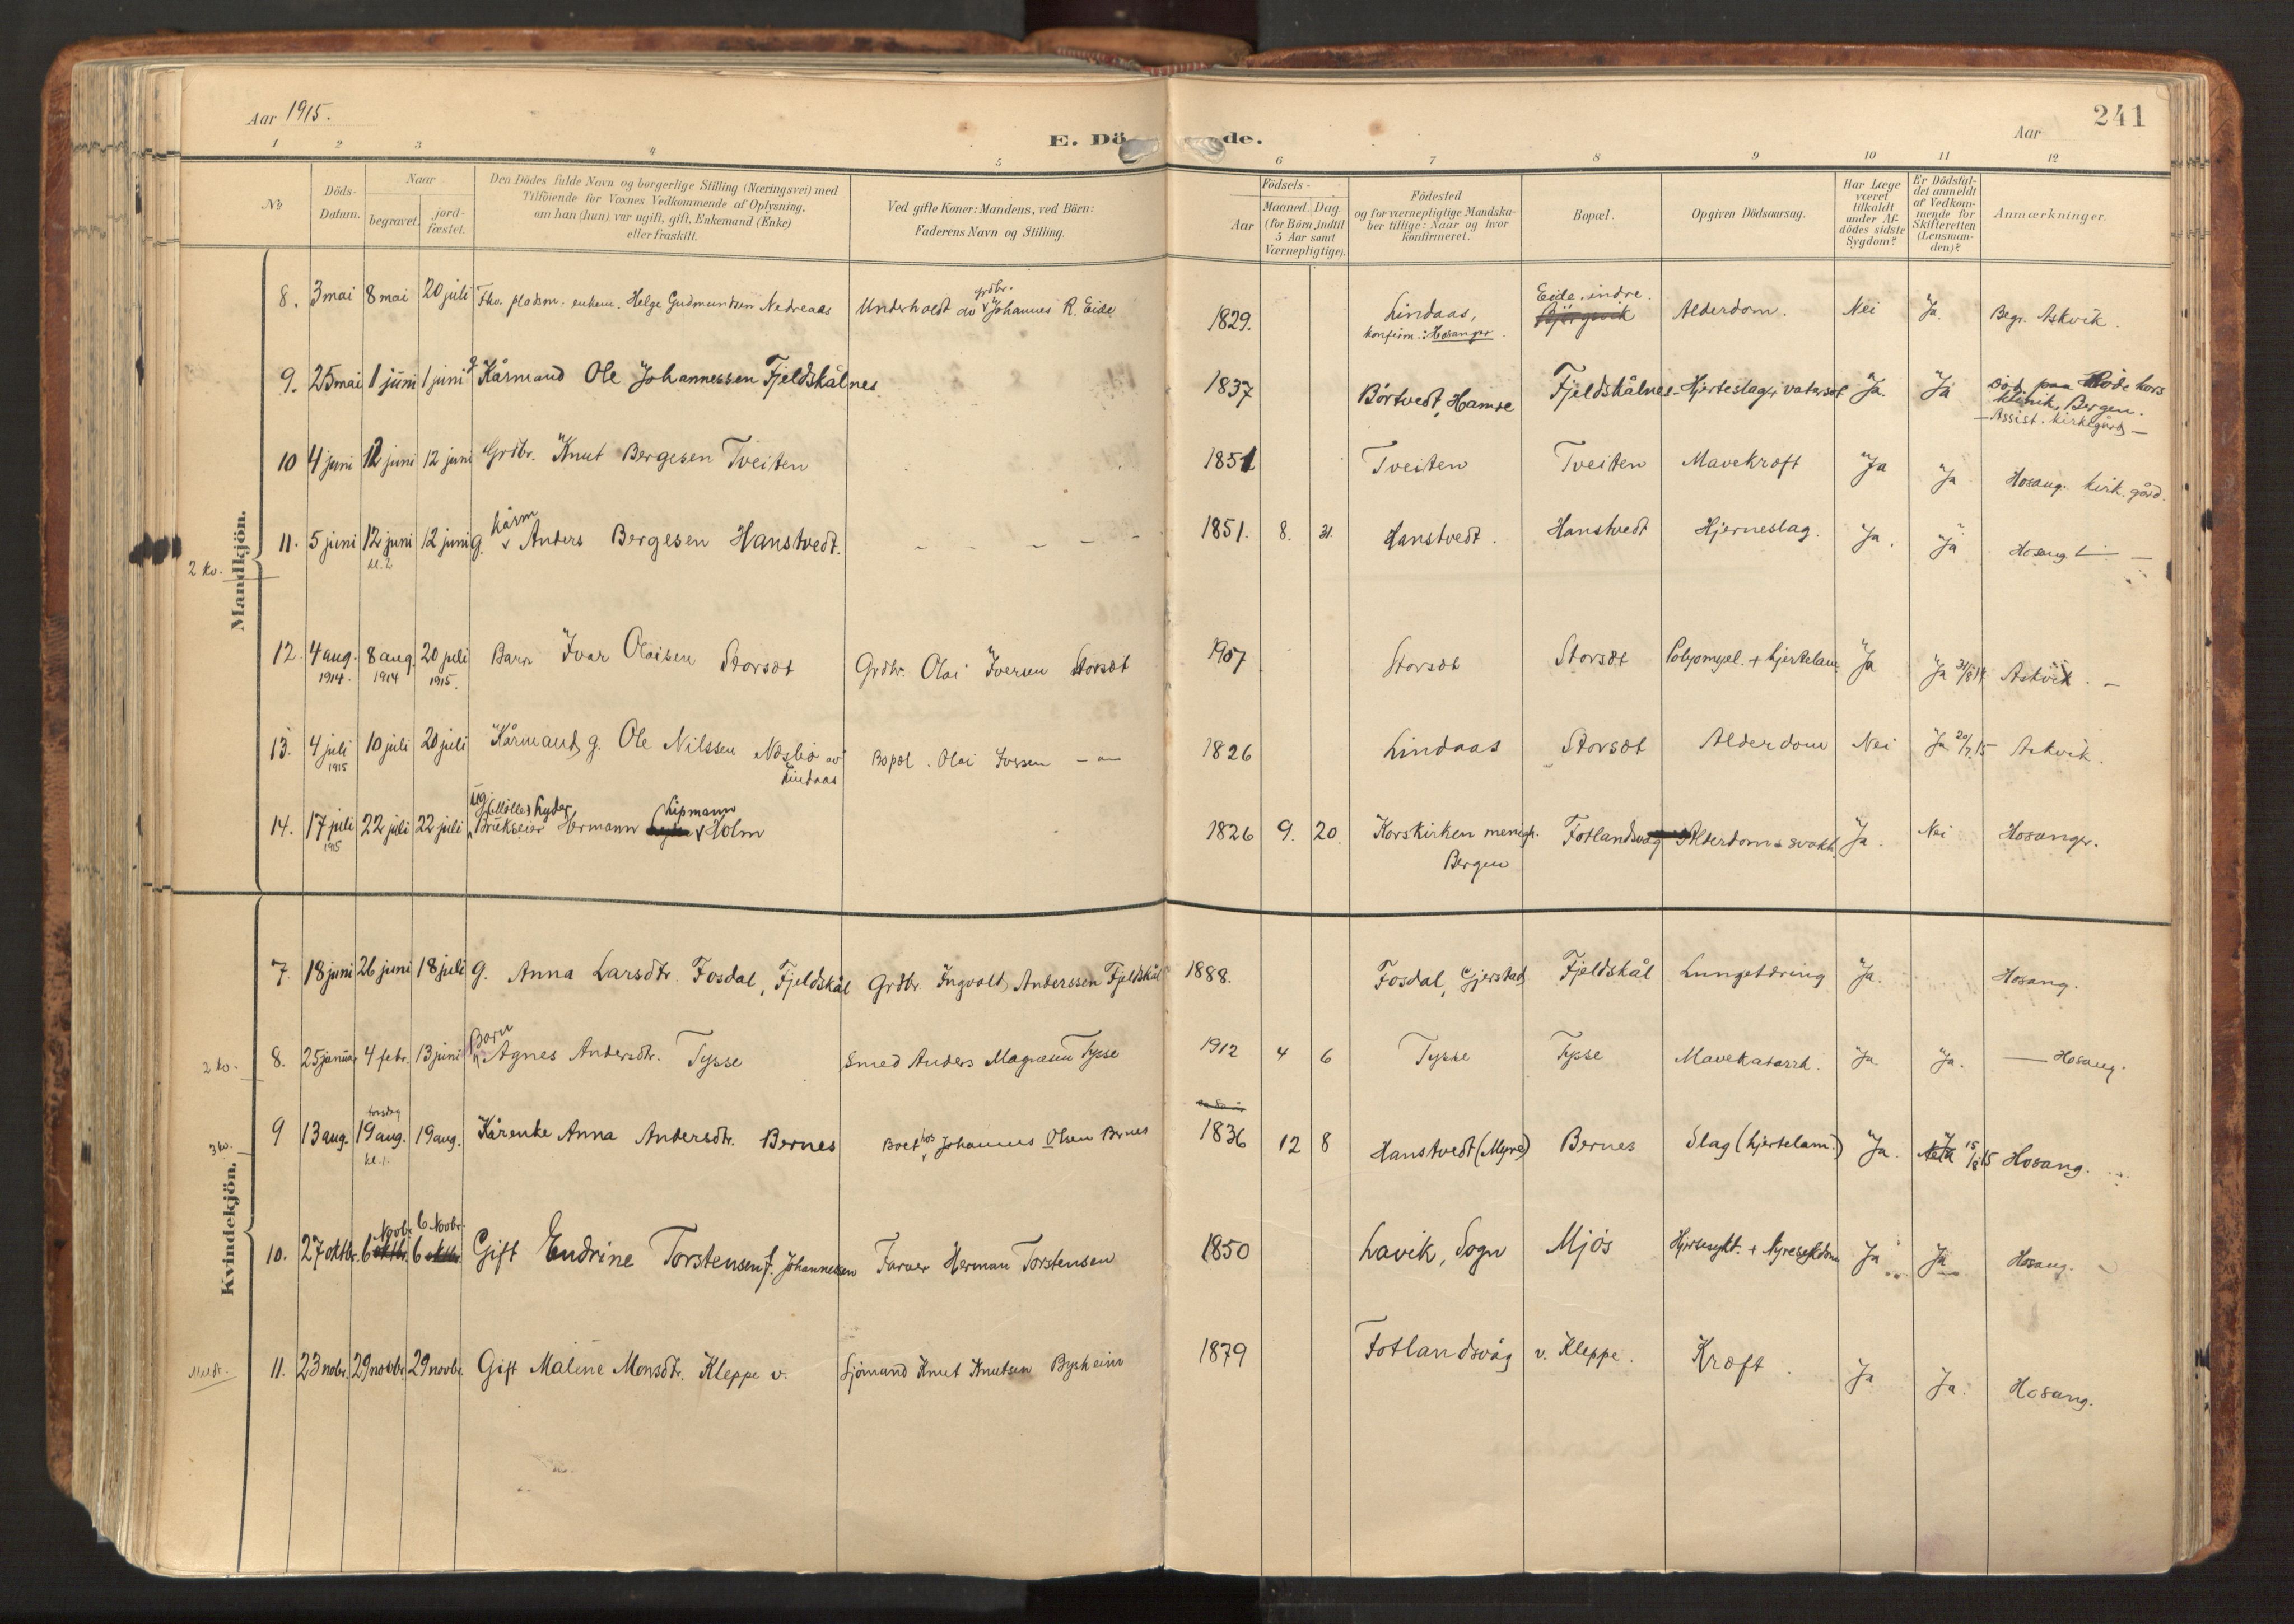 Aar 1915.
E. Dö de.
Aar
241
1 2 3 4 5 6 7 8 9 10 11 12
No
Döds-Datum.
Naar
begravet.
jord-fæstet.
Den Dödes fulde Navn og borgerlige Stilling (Næringsvei) med
Tilföiende for Voxnes Vedkommende af Oplysning,
om han (hun) var ugift, gift, Enkemand (Enke)
eller fraskilt.
Ved gifte Koner: Mandens, ved Börn:
Faderens Navn og Stilling.
Födsels-
Aar
Maaned. Dag.
(for Börn indtil
5 Aar samt
Værnepligtige).
Födested
og for værnepligtige Mandska-
ber tillige: Naar og hvor
konfirmeret.
Bopæl.
Opgiven Dödsaarsag.
Har Læge
været
tilkaldt
under Af-
dödes sidste
Sygdom?
Er Dödsfal-
det anmeldt
af Vedkom-
mende for
Skifteretten
(Lensman-
den)?
Anmærkninger.
Mandkjön.
8. 3 mai 8 mai 20 juli Fho. pladsm. enkem. Helge Gudmundsen Nedreaas Underholdt av grdbr. Johannes R. Eide 1829. Lindaas, Eide indre. Alderdom. Nei Ja. Begr. Askvik.
konfirm.: Hosanger.
9. 25 mai 1 juni 1 juni g Kårmand Ole Johannessen Fjeldskålnes 1837 Börtvedt, Hamre Fjeldskålnes Hjerteslag, vatersot Ja. Ja Död paa Röde kors
klinik, Bergen.
— Assist. kirkegård —
10 4 juni 12 juni 12 juni Grdbr. Knut Bergesen Tveiten 1851 Tveiten Tveiten Mavekræft Ja Ja Hosang. kirk. gård.
2 kv.
11. 5 juni 12 juni 12 juni g. kårm Anders Bergesen Hanstvedt. – – – – – 1851. 8. 31. Hanstvedt. Hanstvedt Hjerneslag. Ja. Ja Hosang.
kl. 2
12. 4 aug. 8 aug. 20 juli Barn Ivar Olaisen Storsæt Grdbr. Olai Iversen Storsæt 1907 Storsæt Storsæt Polyomyel. + hjertelam Ja Ja 31/8 14 Askvik. –
1914. 1914 1915.
13. 4 juli 10 juli 20 juli Kårmand, g. Ole Nilssen Næsbö av Bopæl. Olai Iversen 1826 Lindaas Storsæt Alderdom Nei Ja 20/7 15 Askvik.
1915 Lindaas
14. 17 juli 22 juli 22 juli ug (Möller) Brukseier Hermann Lipmann Holm 1826 9. 20. Korskirken menigh. Fotlandsvåg Alderdom svakh. Ja. Nei Hosanger.
1915 Bergen
Kvindekjön.
7. 18 juni 26 juni 18 juli g. Anna Larsdtr. Fosdal, Fjeldskål Grdbr. Ingvald Anderssen Fjeldskål 1888. Fosdal, Gjerstad Fjeldskål Lungetæring Ja. Hosang.
2 kv.
8. 25 januar 4 febr. 13 juni Barn Agnes Andersdtr. Tysse Smed Anders Magnesen Tysse 1912 4 6 Tysse Tysse Mavekatarrh. Ja Ja. — Hosang.
3 kv.
9 13 aug. torsdag 19 aug. 19 aug. Kårenke Anna Andersdtr. Bernes Boet hos Johannes Olsen Bernes 1836 12 8 Hanstvedt (Myre) Bernes Slag (hjertelam.) Ja. Ja 15/8 15 Hosang.
kl. 1.
10. 27 oktbr. 6 Novbr. 6 Novbr. Gift Endrine Torstensen f. Johannessen Farver Herman Torstensen 1850 Lavik, Sogn Mjös Hjertesykd. + Nyresykdom Ja Ja Hosang.
11. 23 nobr. 29 novbr. 29 novbr. Gift Malene Monsdtr. Kleppe v. Sjömand Knut Knutsen Byrheim 1879 Fotlandsvåg v. Kleppe. Kræft. Ja Ja. Hosang.